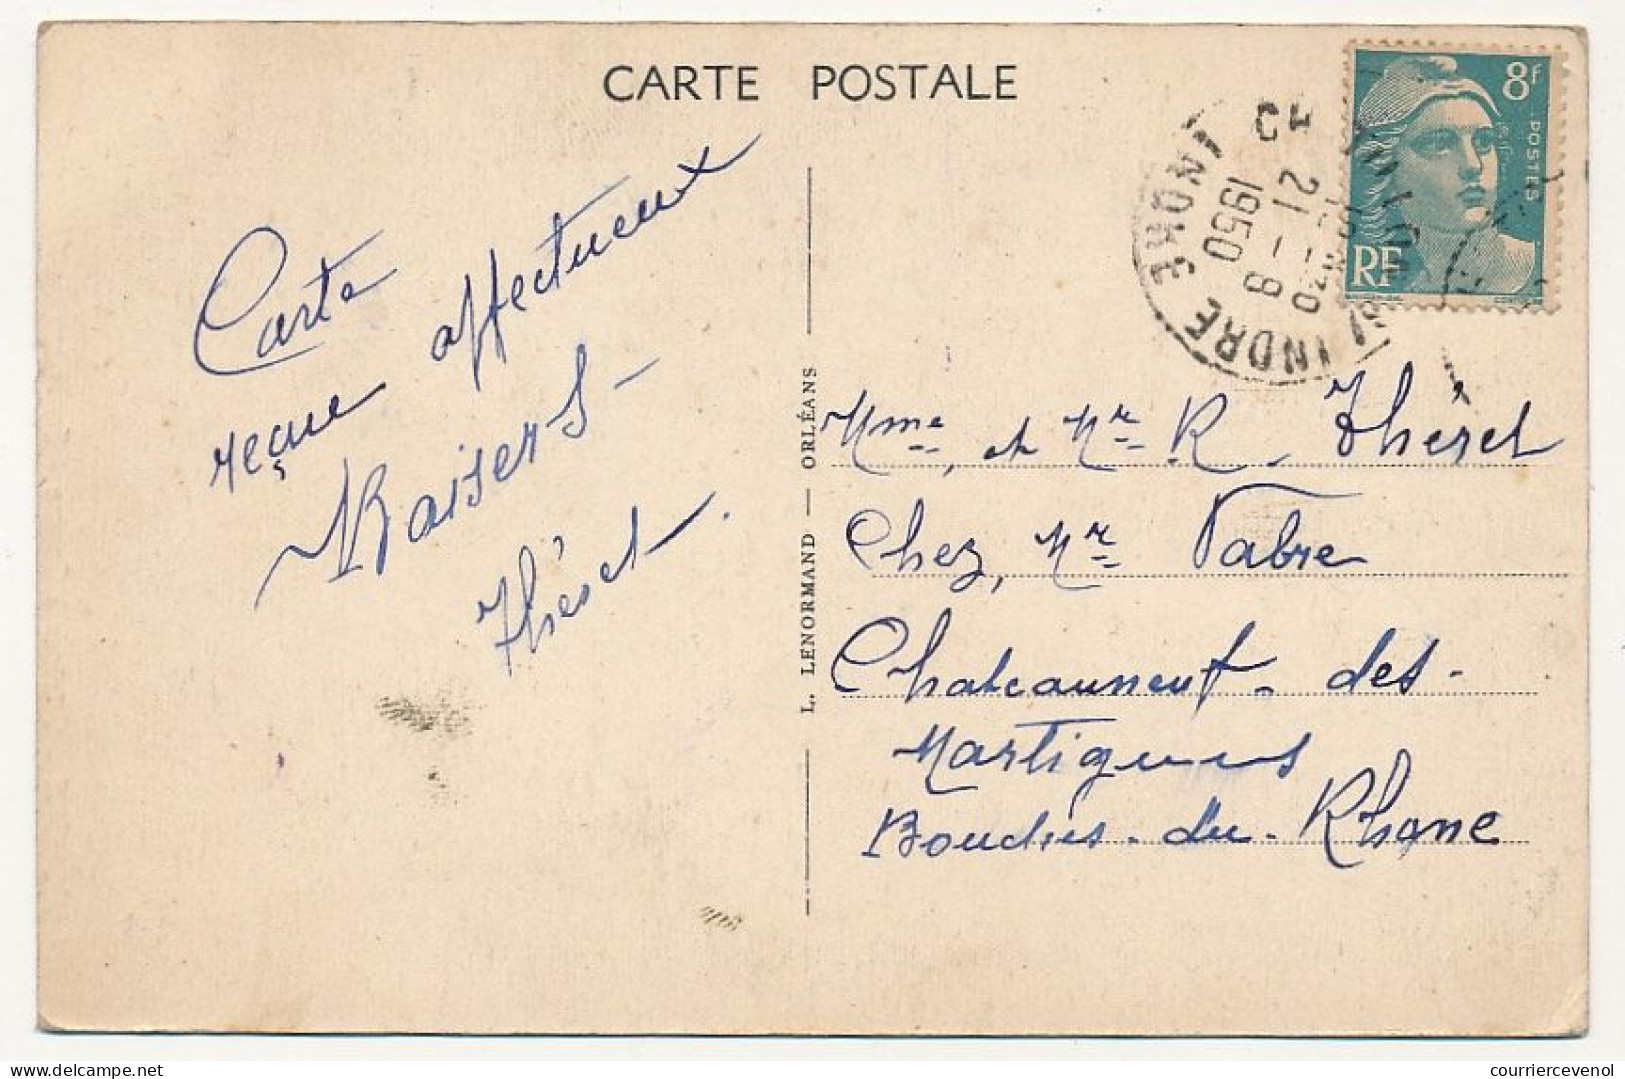 CARTE POSTALE
Carte
reçue affectueux
Baisers
Théret
L. LENORMAND — ORLÉANS
8f
POSTES
RF
INDRE
21 - 8
1950
Mme, et Mr R. Théret
Chez, Mr Fabre
Chateauneuf-des-
Martigues
Bouches-du-Rhone
www.delcampe.net
courriercevenol